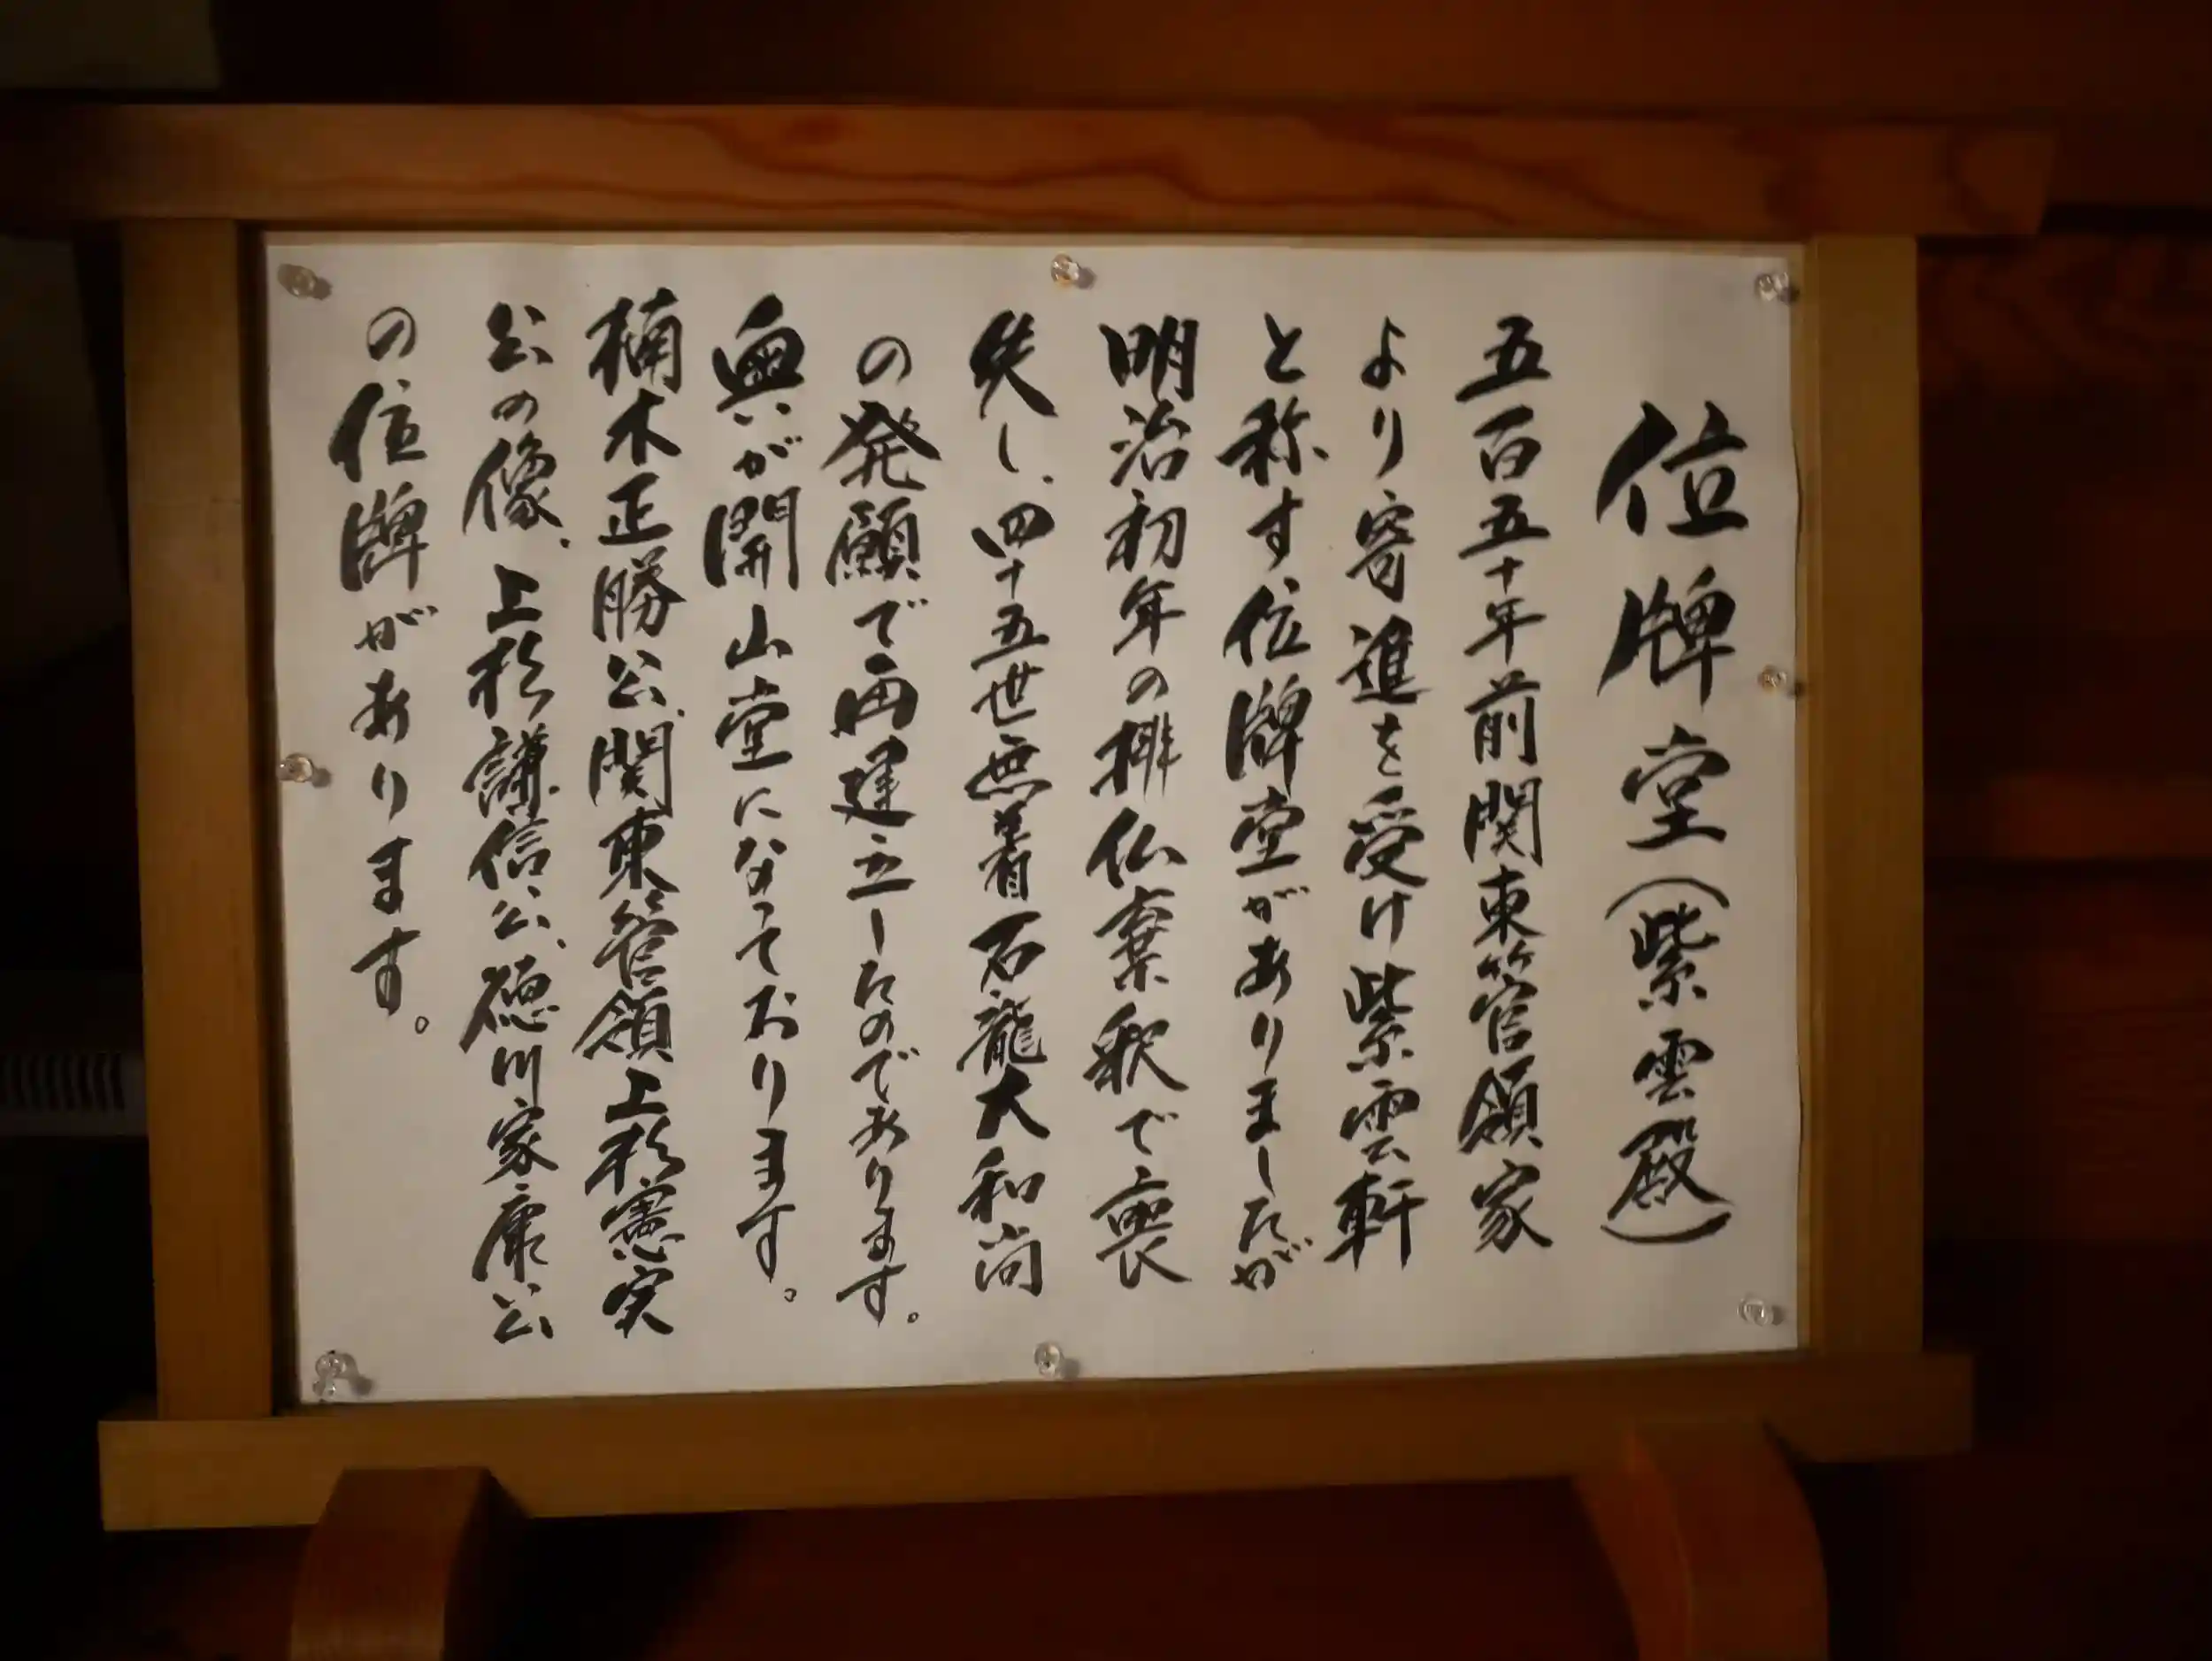 位牌堂(紫雲殿)
五百五十年前関東管領家
より寄進を受け紫雲軒
と称す位牌堂がありましたが
明治初年の排仏棄釈で喪
失し、四十五世無着石龍大和尚
の発願で再建立したのであります。
奥が開山堂になっております。
楠木正勝公、関東管領上杉憲実
公の像、上杉謙信公、徳川家康公
の位牌があります。